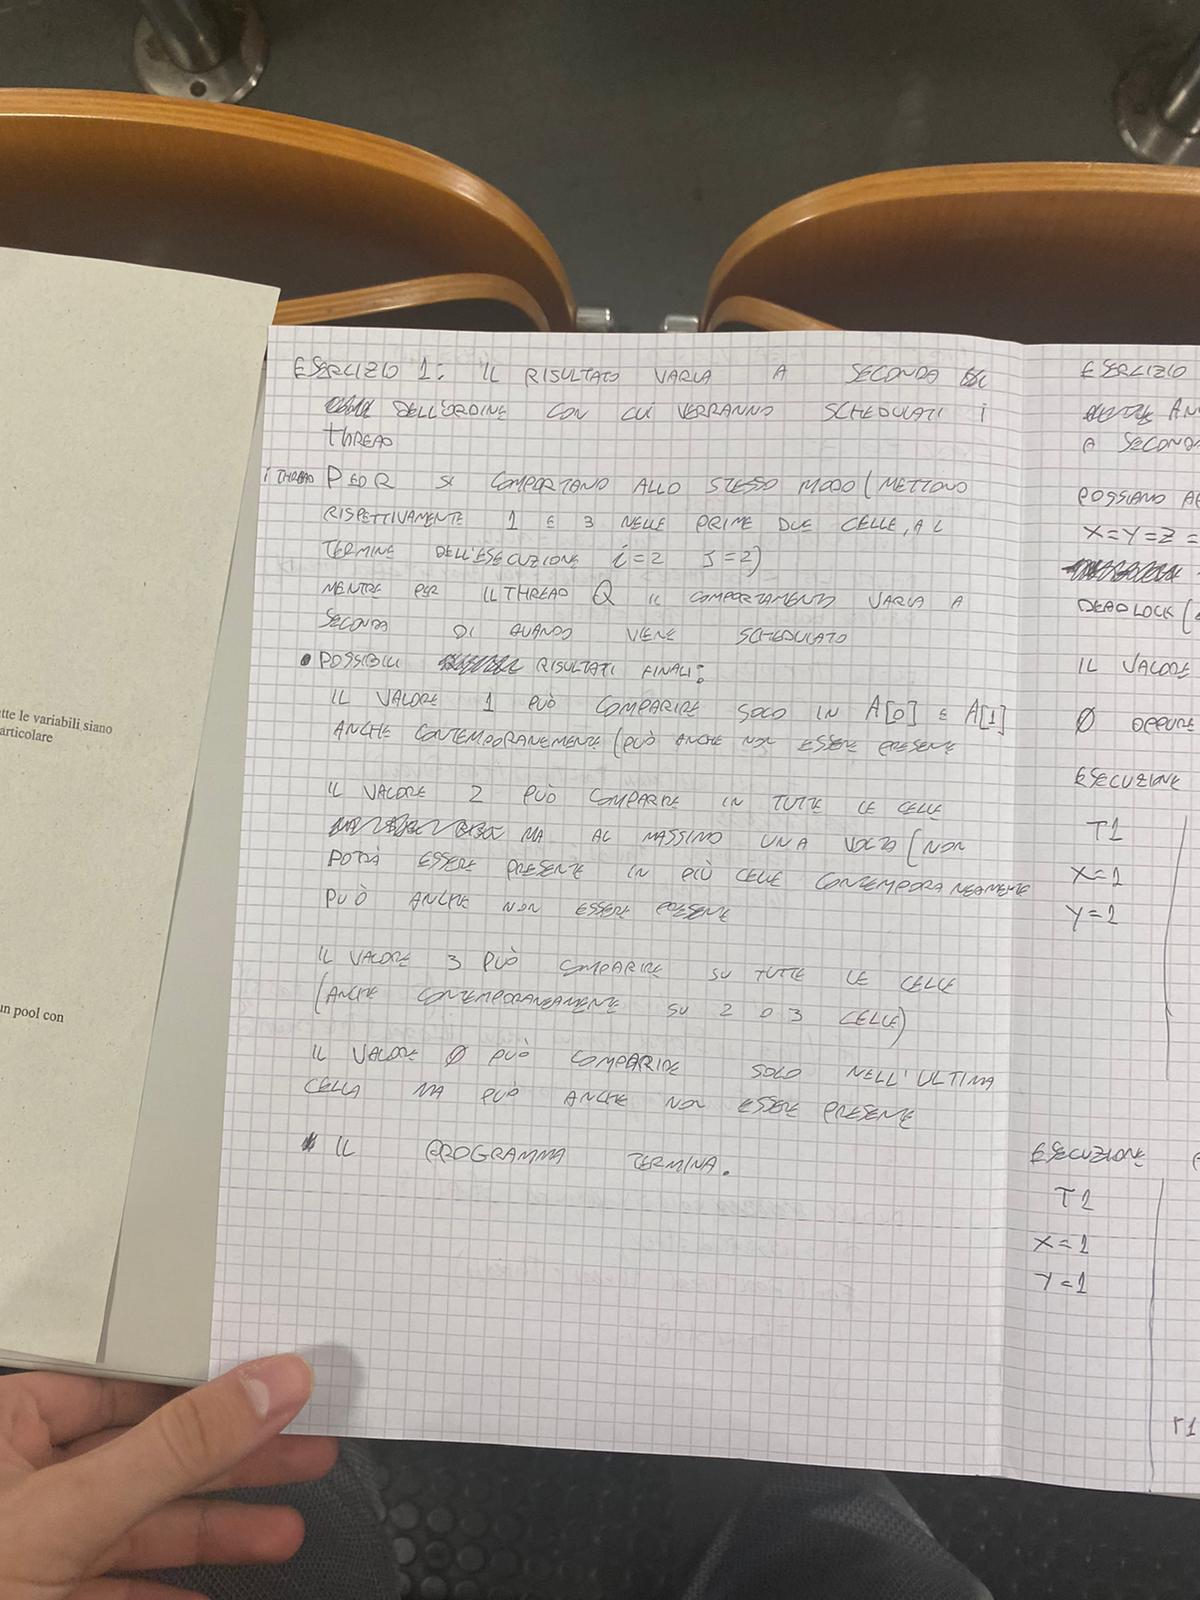 ESERCIZIO 1: IL RISULTATO VARIA A SECONDA
DELL'ORDINE CON CUI VERRANNO SCHEDULATI I
THREAD
i THREAD P ED R SI COMPORTANO ALLO STESSO MODO (METTONO
RISPETTIVAMENTE 1 E 3 NELLE PRIME DUE CELLE, AL
TERMINE DELL'ESECUZIONE i=2 J=2)
MENTRE PER IL THREAD Q IL COMPORTAMENTO VARIA A
SECONDA DI QUANDO VIENE SCHEDULATO
• POSSIBILI RISULTATI FINALI:
IL VALORE 1 PUÒ COMPARIRE SOLO IN A[0] E A[1]
ANCHE CONTEMPORANEMENTE (PUÒ ANCHE NON ESSERE PRESENTE
IL VALORE 2 PUÒ COMPARIRE IN TUTTE LE CELLE
MA AL MASSIMO UNA VOLTA (NON
POTRÀ ESSERE PRESENTE IN PIÙ CELLE CONTEMPORANEAMENTE
PUÒ ANCHE NON ESSERE PRESENTE
IL VALORE 3 PUÒ COMPARIRE SU TUTTE LE CELLE
(ANCHE CONTEMPORANEAMENTE SU 2 O 3 CELLE)
IL VALORE Ø PUÒ COMPARIRE SOLO NELL'ULTIMA
CELLA MA PUÒ ANCHE NON ESSERE PRESENTE
• IL PROGRAMMA TERMINA.
ESERCIZIO
A SECOND
POSSIANO
X=Y=Z =
DEADLOCK (
IL VALORE
Ø OPPURE
ESECUZIONE
T1
X=1
Y=1
ESECUZIONE
T1
X=1
Y=1
T1
tte le variabili siano
articolare
un pool con